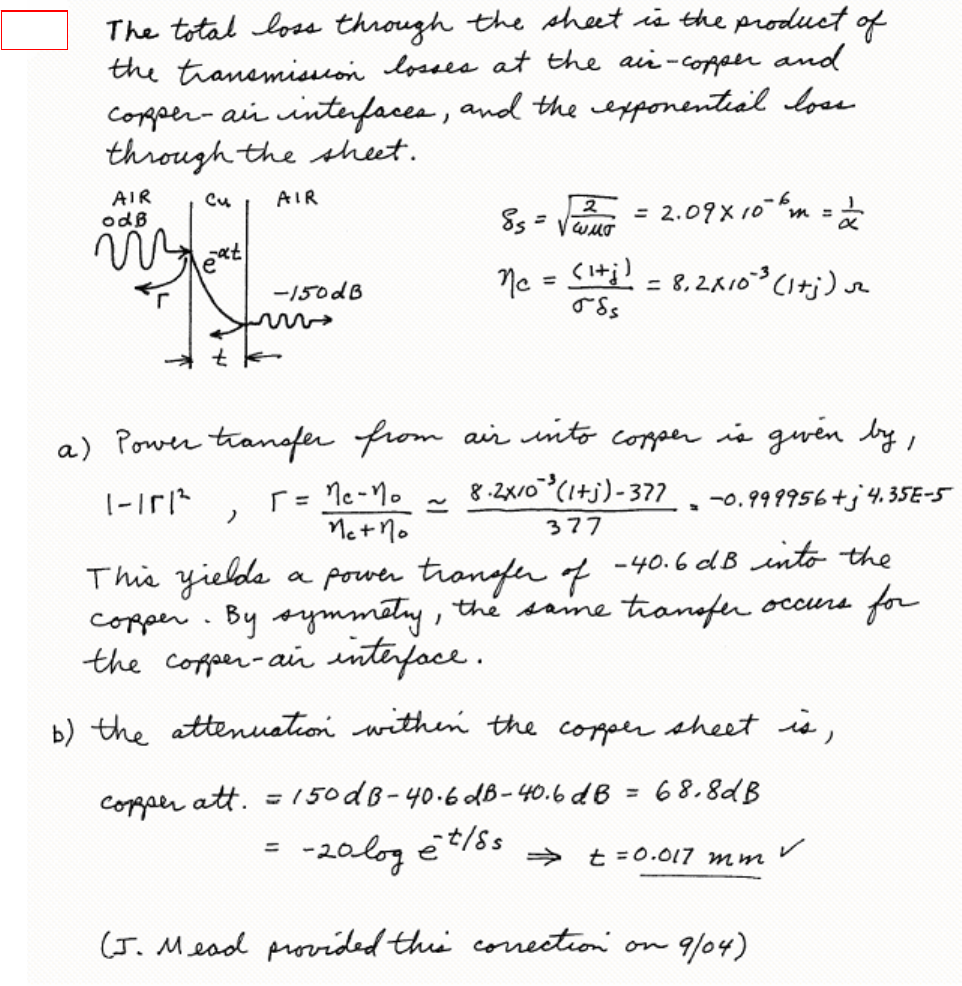 The total loss through the sheet is the product of
the transmission losses at the air-copper and
copper-air interfaces, and the exponential loss
through the sheet.
AIR Cu AIR
0dB
e^-αt
Γ
-150dB
t
δs = √(2/ωμσ) = 2.09 X 10^-6 m = 1/α
ηc = (1+j)/σδs = 8.2X10^-3 (1+j) Ω
a) Power transfer from air into copper is given by,
1-|Γ|² , Γ = (ηc-η0)/(ηc+η0) ≃ (8.2X10^-3(1+j)-377)/377 = -0.999956+j4.35E-5
This yields a power transfer of -40.6 dB into the
copper. By symmetry, the same transfer occurs for
the copper-air interface.
b) the attenuation within the copper sheet is,
copper att. = 150dB-40.6dB-40.6dB = 68.8dB
= -20log e^-t/δs ⇒ t = 0.017 mm ✓
(J. Mead provided this correction on 9/04)